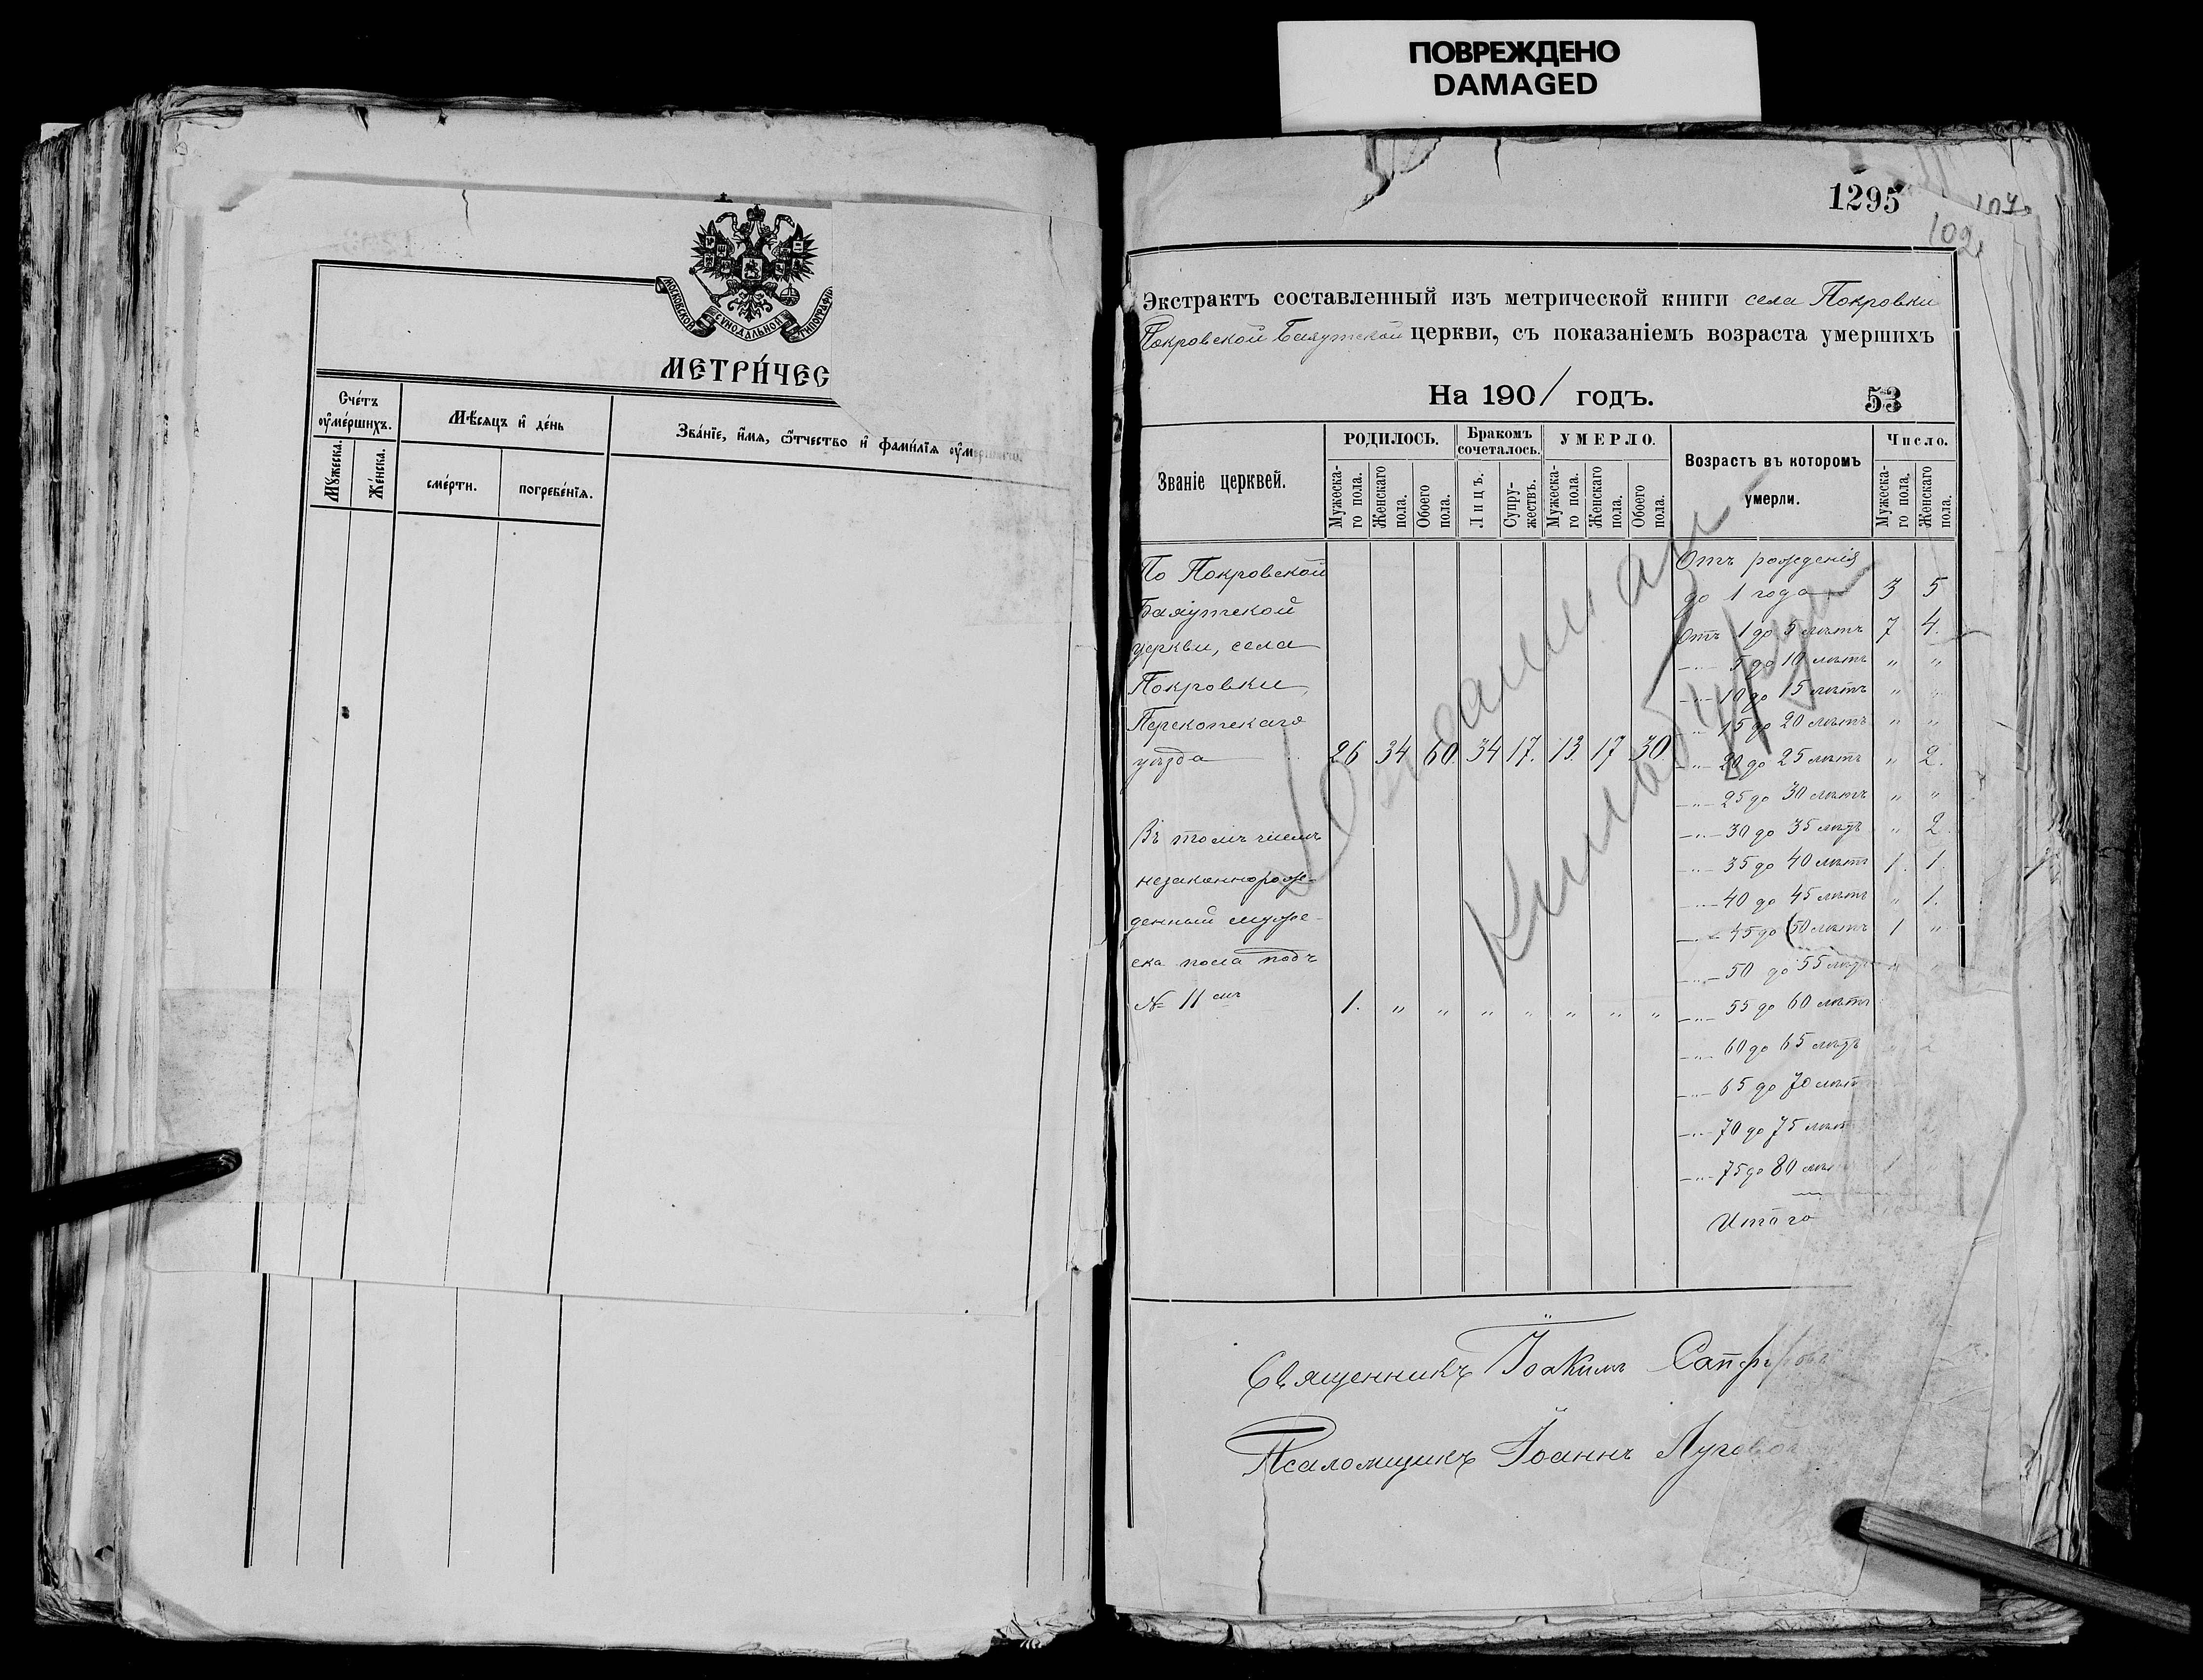 ПОВРЕЖДЕНО
DAMAGED
МОСКОВСКОЙ СѴНОДАЛЬНОЙ ТИПОГРАФІИ
МЕТРИ́ЧЕС
Счéтъ ᲂу҆мéршихъ.
Мꙋ́жеска.
Жéнска.
Мѣ́сѧцъ и҆ дéнь
смéрти.
погребéнїѧ.
Звáнїе, и҆́мѧ, ѻ҆́тчество и҆ фамѝлїѧ ᲂу҆мéршагѡ.
1295
102
Экстрактъ составленный изъ метрической книги села Покровки
Покровской Баяутской церкви, съ показаніемъ возраста умершихъ
На 1901 годъ.
53
Званіе церквей.
РОДИЛОСЬ.
Мужеска-го пола.
Женскаго пола.
Обоего пола.
Бракомъ сочеталось.
Лицъ.
Супру-жествъ.
УМЕРЛО.
Мужеска-го пола.
Женскаго пола.
Обоего пола.
Возрастъ въ которомъ умерли.
Число.
Мужеска-го пола.
Женскаго пола.
По Покровской
Баяутской
церкви, села
Покровки,
Перекопскаго
уѣзда 26 34 60 34 17. 13. 17 30
Въ томъ числѣ
незаконнорож-
денный муже-
ска пола подъ
№ 11 мъ 1. " " " " " " "
Отъ рожденія
до 1 года 3 5
Отъ 1 до 5 лѣтъ 7 4.
—"— 5 до 10 лѣтъ " "
—"— 10 до 15 лѣтъ " "
—"— 15 до 20 лѣтъ " "
—"— 20 до 25 лѣтъ " 2.
—"— 25 до 30 лѣтъ " "
—"— 30 до 35 лѣтъ " 2.
—"— 35 до 40 лѣтъ 1. 1.
—"— 40 до 45 лѣтъ " 1.
—"— 45 до 50 лѣтъ 1 "
—"— 50 до 55 лѣтъ "
—"— 55 до 60 лѣтъ
—"— 60 до 65 лѣтъ
—"— 65 до 70 лѣт
—"— 70 до 75 лѣт
—"— 75 до 80 лѣт
Итого
Священникъ Іоакимъ
Псаломщикъ Іоаннъ